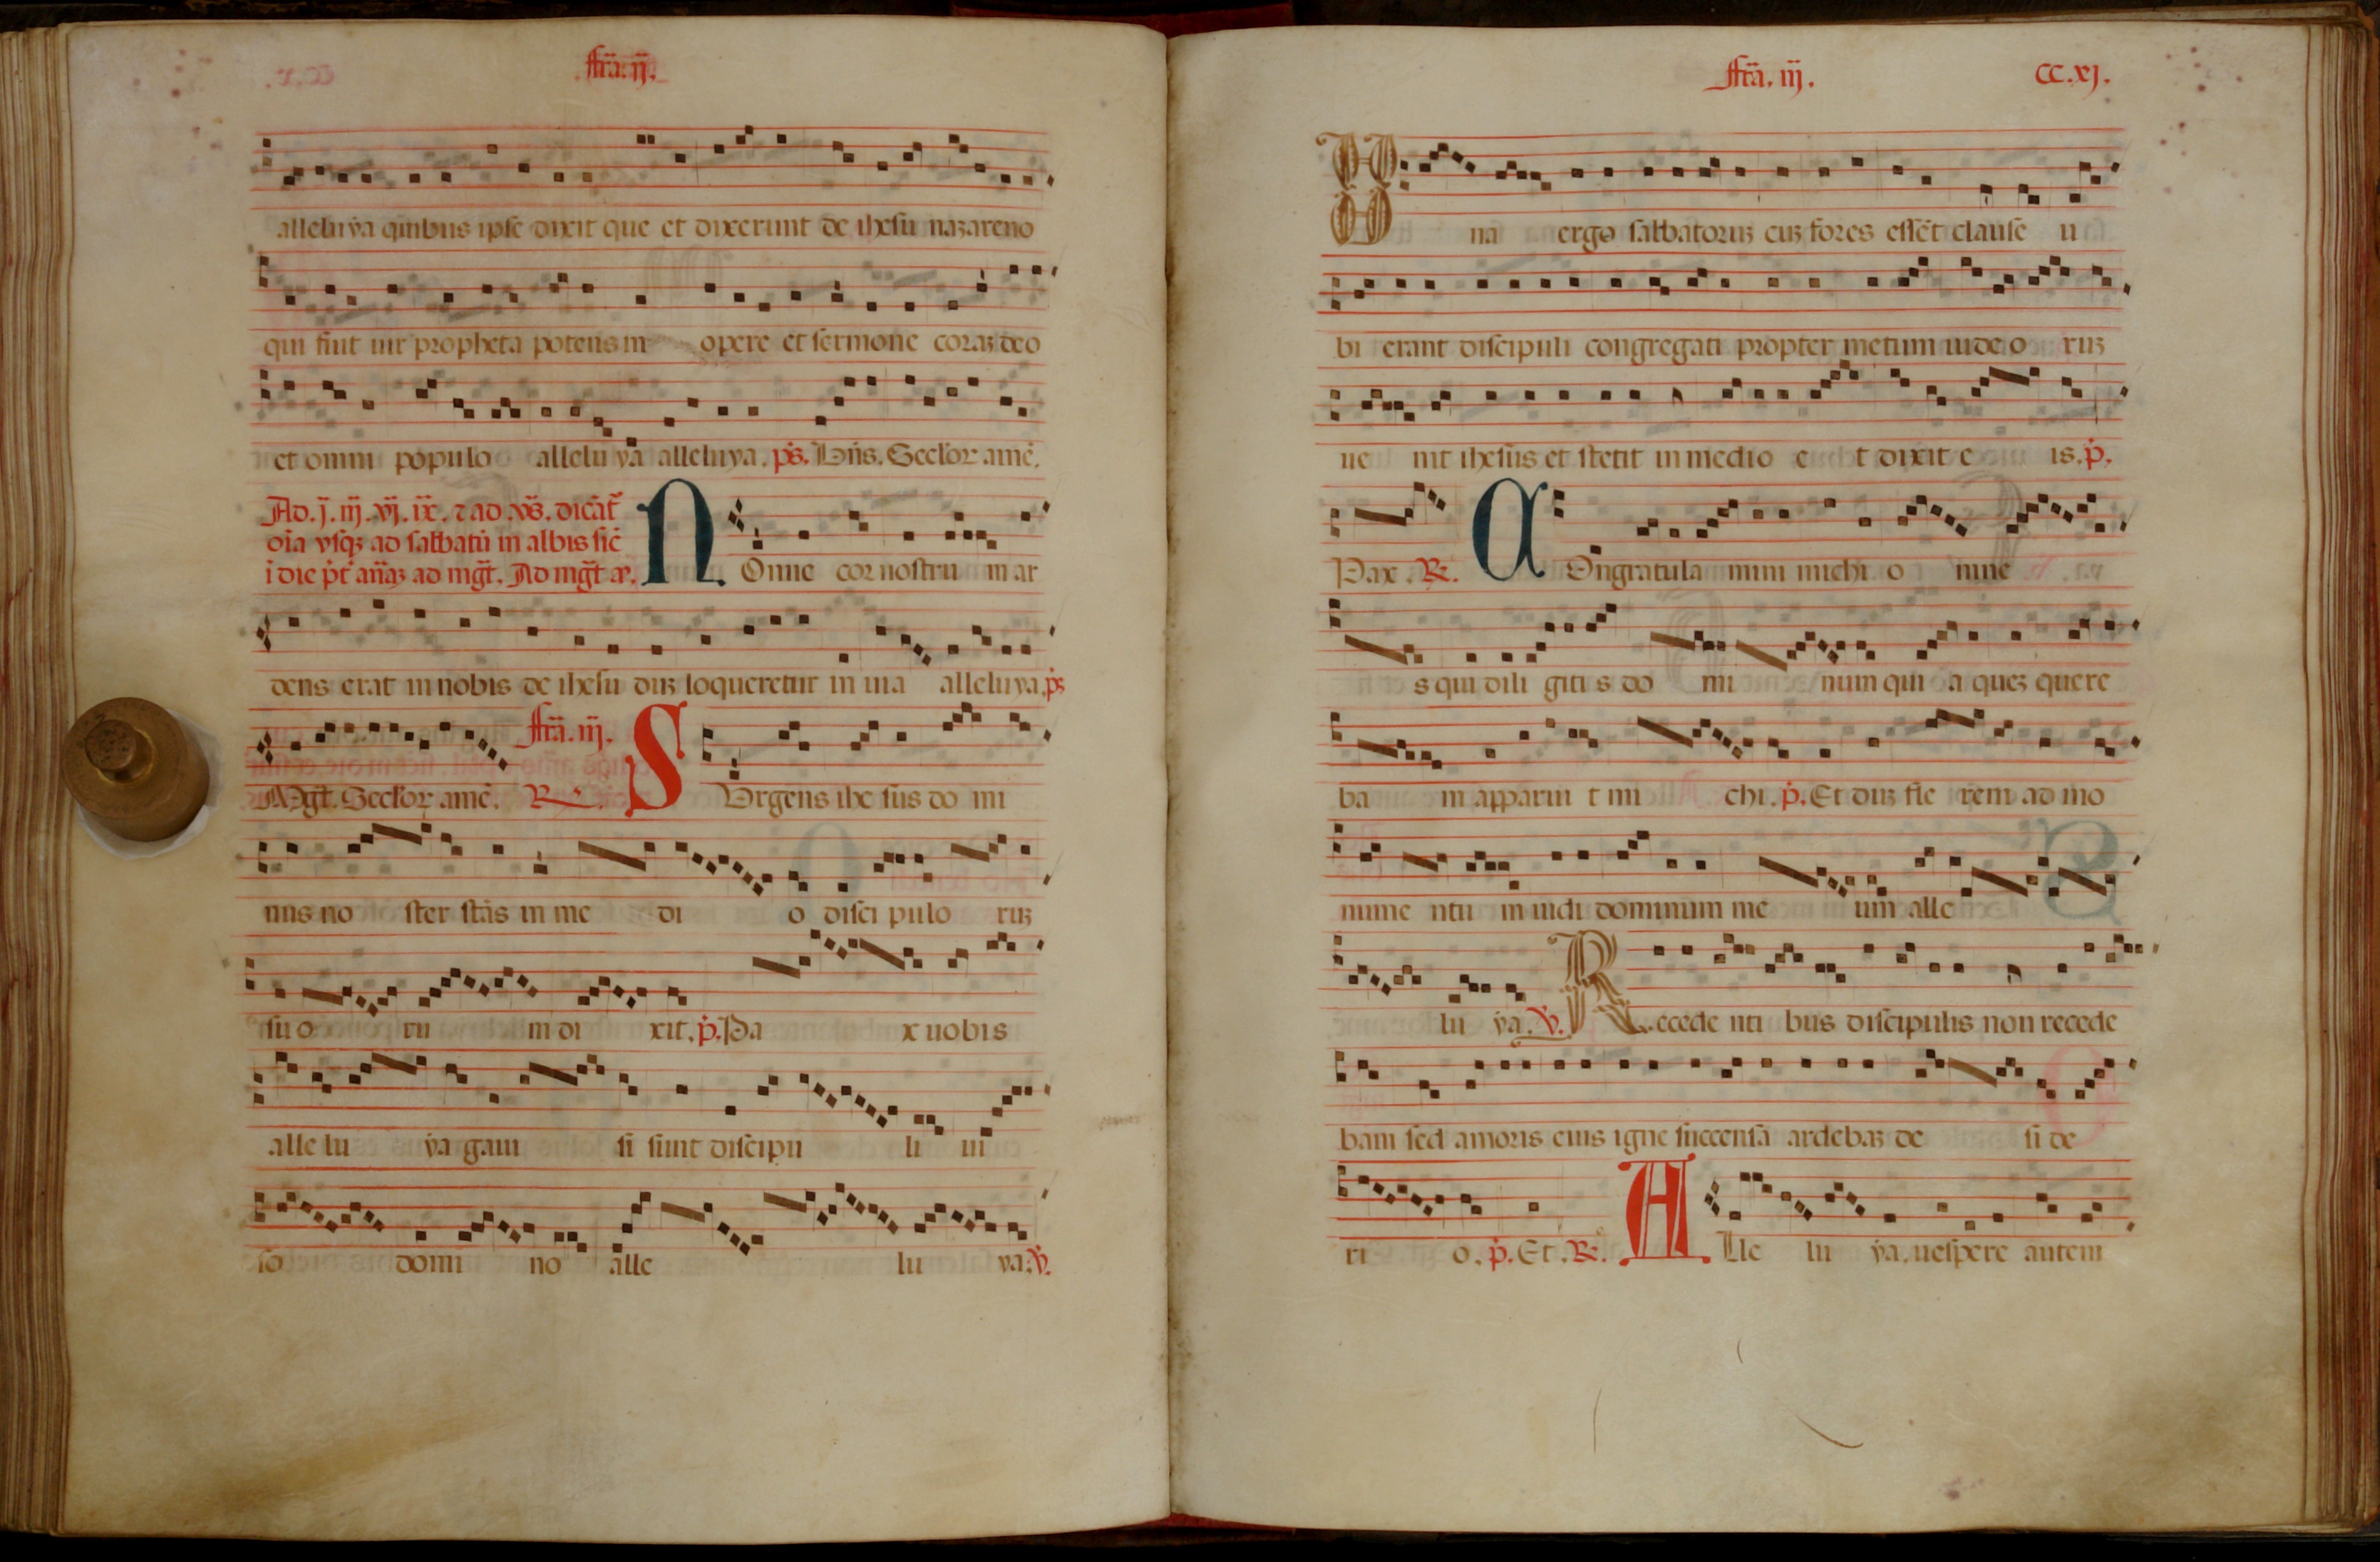 ffr̃a. ij.
alleluya quibus ipse dixit que et dixerunt de ihesu nazareno
qui fuit uir propheta potens in opere et sermone coraz deo
et omni populo allelu ya alleluya. ps. Dñs. Seclor amē.
Ad. j. iij. vj. ix. ⁊ ad .vs̃. dicāt᷑
oīa vsqꝫ ad sabbatū in albis sic̄
N Onne cor nostru m ar
dens erat in nobis de ihesu duꝫ loqueretur in uia alleluya. ps
Mgt̄. Seclor amē. ffr̃a. iij. ℞. S Vrgens ihe sus do mi
nus no ster stās in me di o disci pulo ruꝫ
su o ru m di xit. p̄. Pa x uobis
alle lu ya gaui si sunt discipu li ui
so domi no alle lu ya. ℣.
ffr̃a. iij. CC. xj.
U na ergo sabbatoruꝫ cuꝫ fores essēt clause u
bi erant discipuli congregati propter metum iudeo ruꝫ
ue nit ihesus et stetit in medio e t dixit e is. p̄.
Pax. ℞. C Ongratula mini michi o mne
s qui dili giti s do mi num qui a queꝫ quere
ba m apparui t mi chi. p̄. Et duꝫ fle rem ad mo
nume ntu m uidi dominum me um alle
lu ya. ℣. R ecede nti bus discipulis non recede
bam sed amoris eius igne succensa ardebaꝫ de si de
ri o. p̄. Et. ℞. A Lle lu ya. uespere autem